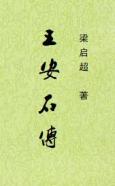 王安石傳
梁启超 著